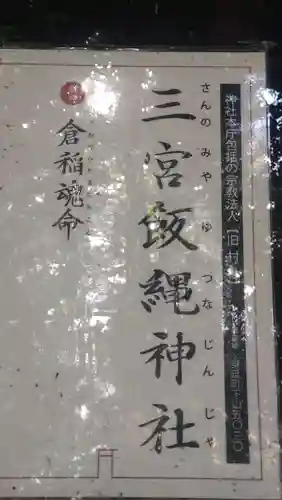 神社本庁包括の宗教法人【旧 村
町下山五〇三〇
さんのみやゆつなじんじゃ
三宮飯縄神社
倉稲魂命